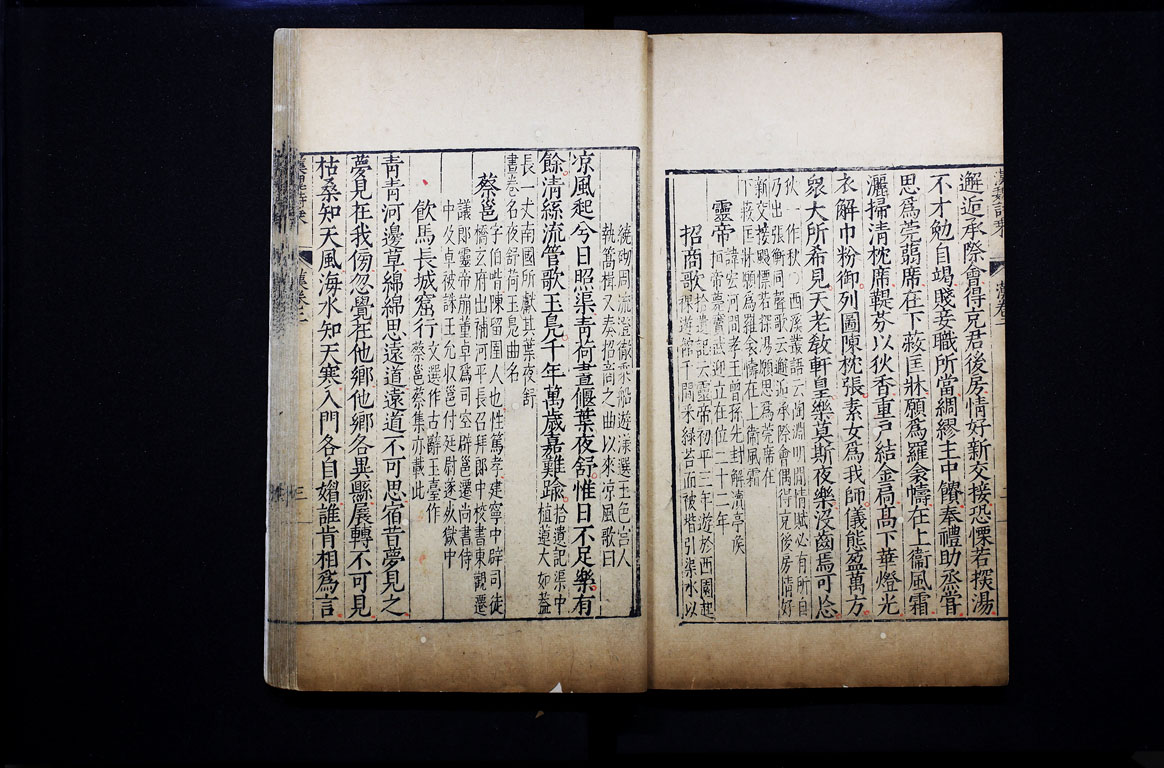 邂逅承際會得充君後房情好新交接恐慄若探湯
不才勉自竭賤妾職所當綢繆主中饋奉禮助烝嘗
思爲莞蒻席在下蔽匡牀願爲羅衾幬在上衞風霜
灑掃清枕席鞮芬以狄香重戸結金扃髙下華燈光
衣解巾粉御列圖陳枕張素女爲我師儀態盈萬方
衆大所希見天老教軒皇樂莫斯夜樂沒齒焉可忘
狄一作秋西溪叢語云陶淵明閒情賦必有所自
乃出張衡同聲歌云邂逅承際會偶得充後房情好
新交接飀慄若探湯願思爲莞席在
下蔽匡牀願爲羅衾幬在上衞風霜
靈帝
諱宏河間孝王曾孫先封解瀆亭侯
桓帝崩竇武迎立在位二十二年
招商歌
拾遺記云靈帝初平三年遊於西園起
祼遊館千間采綠苔而被堦引渠水以
繞砌周流澄徹乘船遊漾選玉色宫人
執篙楫又奏招商之曲以來凉風歌曰
凉風起兮日照渠青荷晝偃葉夜舒惟日不足樂有
餘清絲流管歌玉鳬千年萬歲嘉難踰
拾遺記渠中
植蓮大如蓋
長一丈南國所獻其葉夜舒
晝卷名夜舒荷玉鳬曲名
蔡邕
字伯喈陳留圉人也性篤孝建寧中辟司徒
橋玄府出補河平長召拜郎中校書東觀遷
議郎靈帝崩董卓爲司空辟邕遷尚書侍
中及卓被誅王允収邕付廷尉遂死獄中
飲馬長城窟行
文選作古辭玉臺作
蔡邕蔡集亦載此
青青河邊草綿綿思遠道遠道不可思宿昔夢見之
夢見在我傍忽覺在他鄉他鄉各異縣展轉不可見
枯桑知天風海水知天寒入門各自媚誰肯相爲言
三